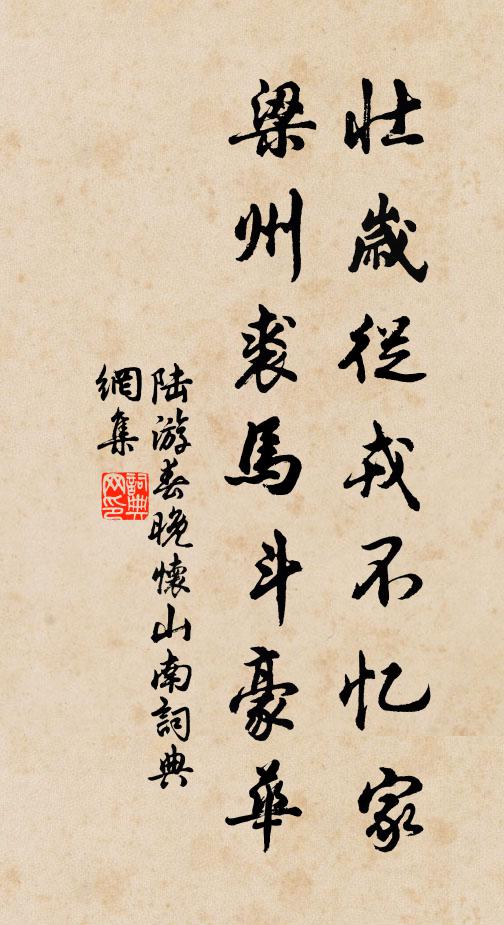 壮歲從戎不忆家
梁州裘馬斗豪華
陆游春晚懷山南詞典
網集
詞典網印